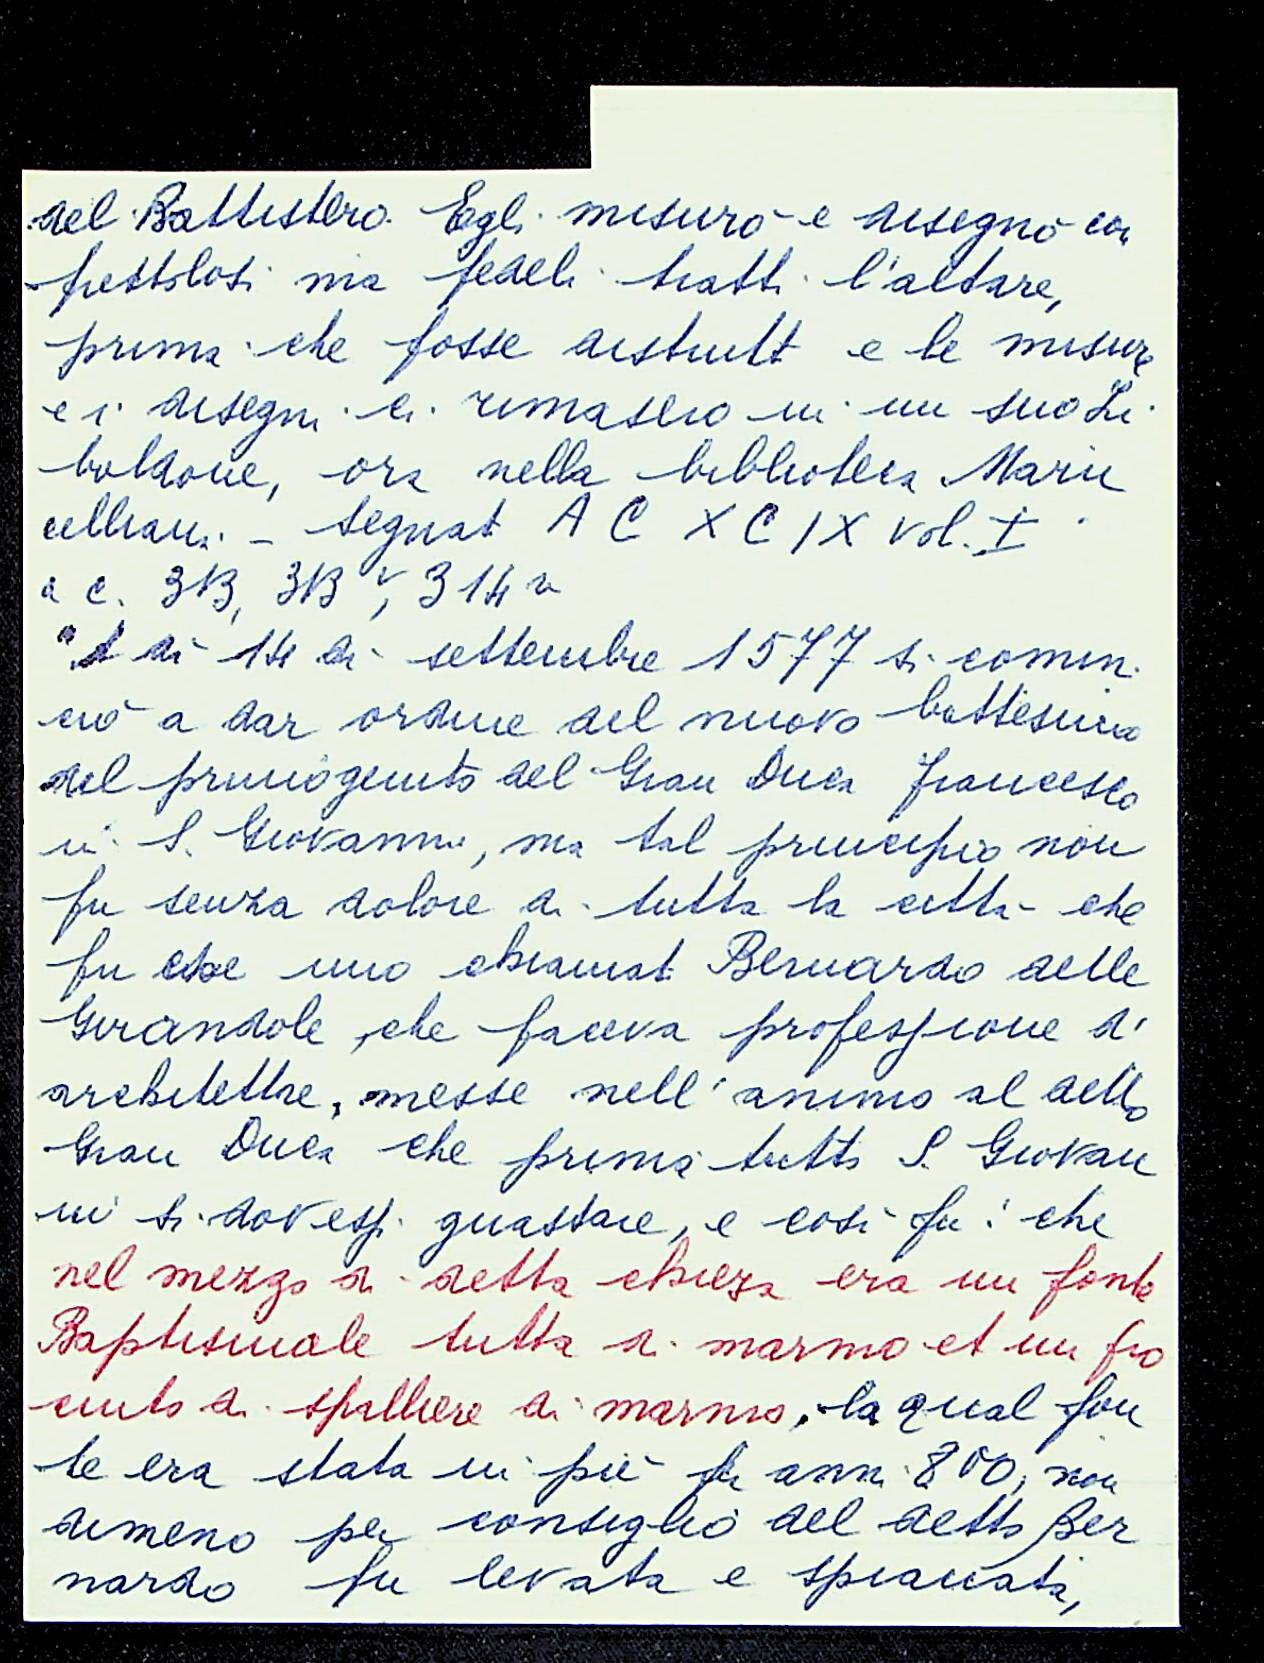 del Battistero. Egli misurò e disegnò con
frettolosi ma fedeli tratti l'altare,
prima che fosse distrutt e le misure
e i disegni ci rimasero in un suo Zi
baldone, ora nella biblioteca Maru
celliana - segnat A C XCIX vol. I
a c. 313, 313 v, 314 v
"A dì 14 di settembre 1577 si comin
ciò a dar ordine del nuovo battesimo
del primogenito del Gran Duca Francesco
in S. Giovanni, ma tal principio non
fu senza dolore di tutta la città che
fu che uno chiamat Bernardo delle
Girandole, che faceva professione d'
architettre, messe nell'animo al detto
Gran Duca che prima tutto S. Giovan
ni si dovessi guastare, e così fu: che
nel mezzo di detta chieza era un fonte
Baptismale tutta di marmo et un fio
cinto di spalliere di marmo, la qual fon
te era stata in piè anni 800, non
dimeno per consiglio del detto Ber
nardo fu levata e spianata,